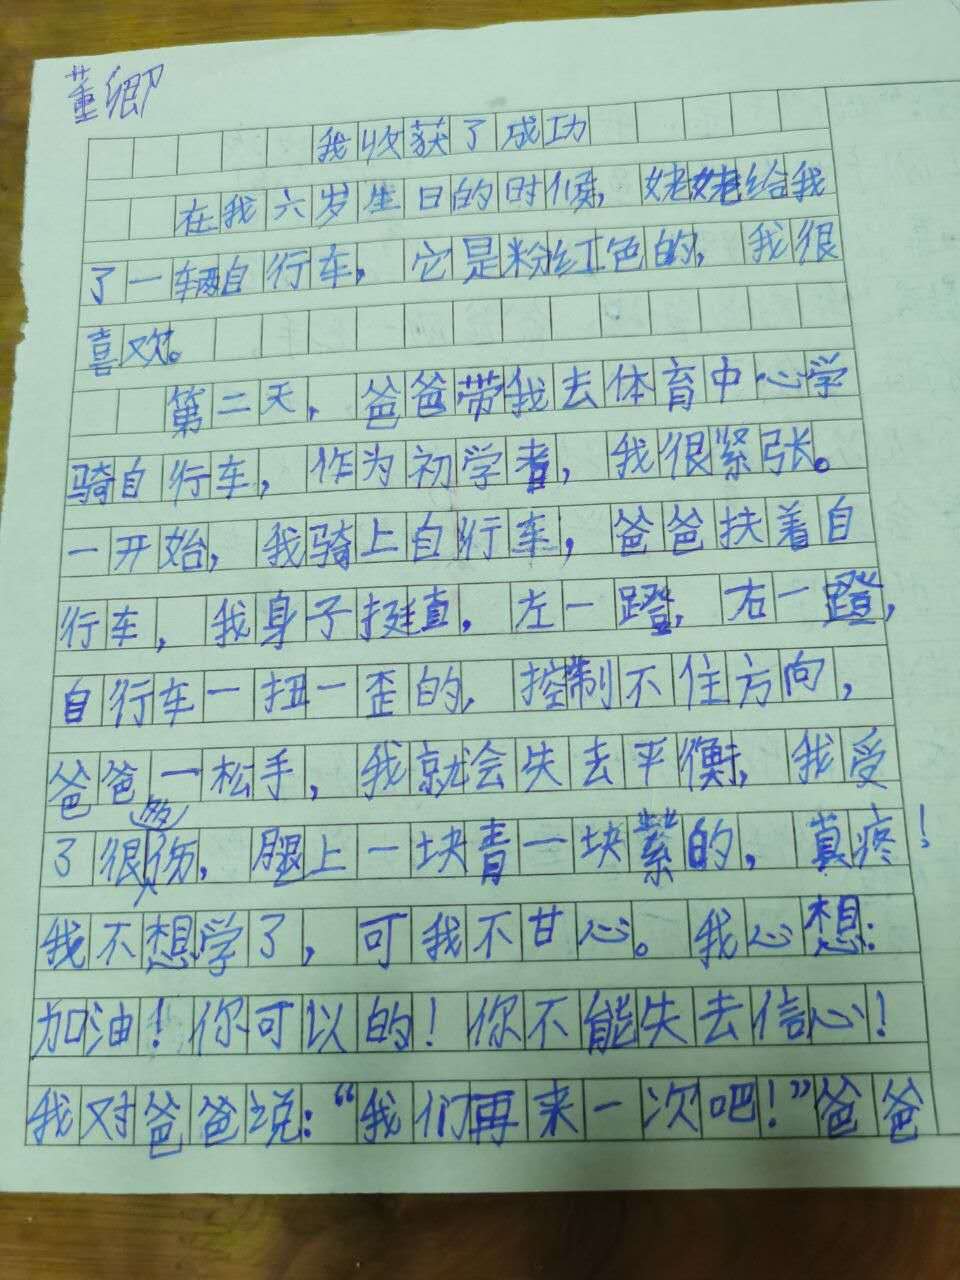 董卿
我收获了成功
在我六岁生日的时候，姥姥给我
了一辆自行车，它是粉红色的，我很
喜欢。
第二天，爸爸带我去体育中心学
骑自行车，作为初学者，我很紧张。
一开始，我骑上自行车，爸爸扶着自
行车，我身子挺直，左一蹬，右一蹬，
自行车一扭一歪的，控制不住方向，
爸爸一松手，我就会失去平衡，我受
了很多伤，腿上一块青一块紫的，真疼！
我不想学了，可我不甘心。我心想：
加油！你可以的！你不能失去信心！
我对爸爸说：“我们再来一次吧！”爸爸